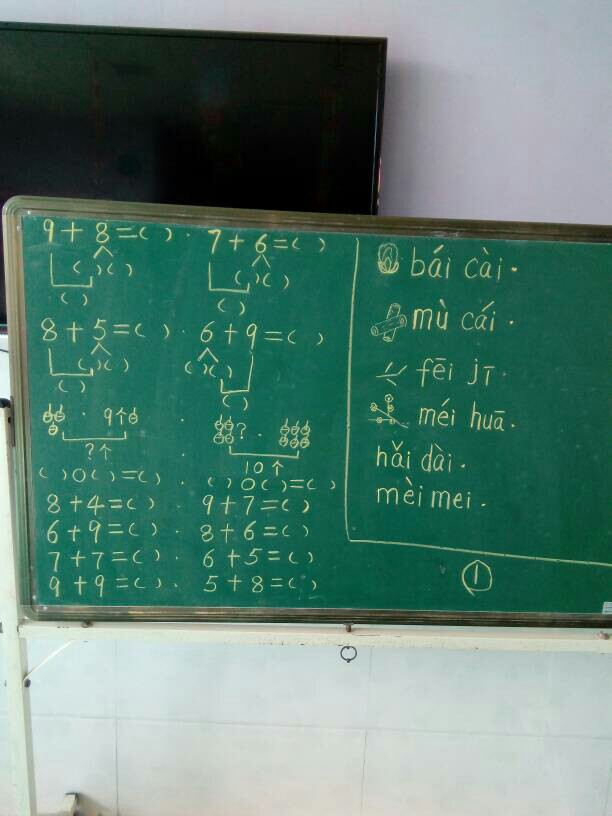 9 + 8 = ( ) · 7 + 6 = ( )
( ) ( ) ( ) ( )
( ) ( )
8 + 5 = ( ) · 6 + 9 = ( )
( ) ( ) ( ) ( )
( ) ( )
· 9个 · ? ·
?个 10个
( ) ○ ( ) = ( ) · ( ) ○ ( ) = ( )
8 + 4 = ( ) · 9 + 7 = ( )
6 + 9 = ( ) · 8 + 6 = ( )
7 + 7 = ( ) · 6 + 5 = ( )
9 + 9 = ( ) · 5 + 8 = ( )
bái cài ·
mù cái ·
fēi jī ·
méi huā ·
hǎi dài ·
mèi mei ·
①